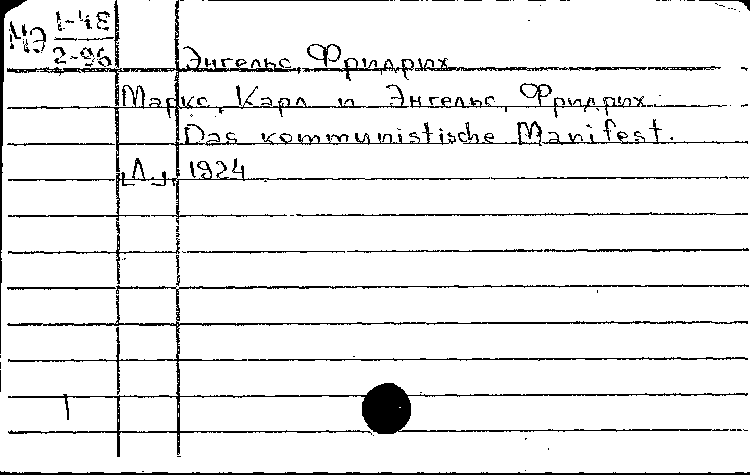 МЭ 1-48
2-96
Энгельс, Фридрих
Маркс, Карл и Энгельс, Фридрих.
Das kommunistische Manifest.
[Л.], 1924
1